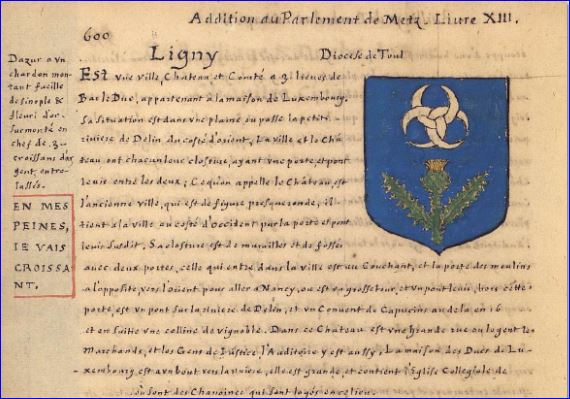 Addition au Parlement de Metz. Liure XIII.
600
Ligny Diocese de Toul
Dazur a vn
chardon mon
tant facille
de sinople &
fleuri d'or
surmonté en
chef de 3.
croissans d'ar
gent, entre-
lassés.
EN MES
PEINES,
IE VAIS
CROISSA
NT.
Est vne ville, Chateau et Comté a 3 lieües de
Bar le Duc, appartenant a la maison de Luxembourg.
Sa situation est dans vne plaine ou passe la petite
riviere de Delin du costé d'orient, La ville et le Châ
teau ont chacun leur closture, ayant vne porte et pont
leuis entre les deux; Ce qu'on appelle le Château, est
l'ancienne ville, qui est de figure presque ronde, il
tient a la ville au costé d'occident par la porte et pont
leuis susdit. Sa closture est de murailles et de fossés
auec deux portes, celle qui entre dans la ville est au Couchant, et la porte des moulins
a l'opposite vers l'orient pour aller a Nancy, ou est vn gros seteur, et vn pont leuis, hors cette
porte, est vn pont sur la riuiere de Delin, et vn Conuent de Capucins au dela, en 16
et en suitte vne colline de vignoble. Dans ce Chateau est vne grande rue ou logent les
Marchands, et les Gens de Iustice, l'Auditoire y est aussy. La maison des Ducs de Lu-
xembourg est au bout vers la riuiere, elle est grande, et contient l'Eglise Collegiale de
où sont des Chanoines qui sont logés en ce lieu.